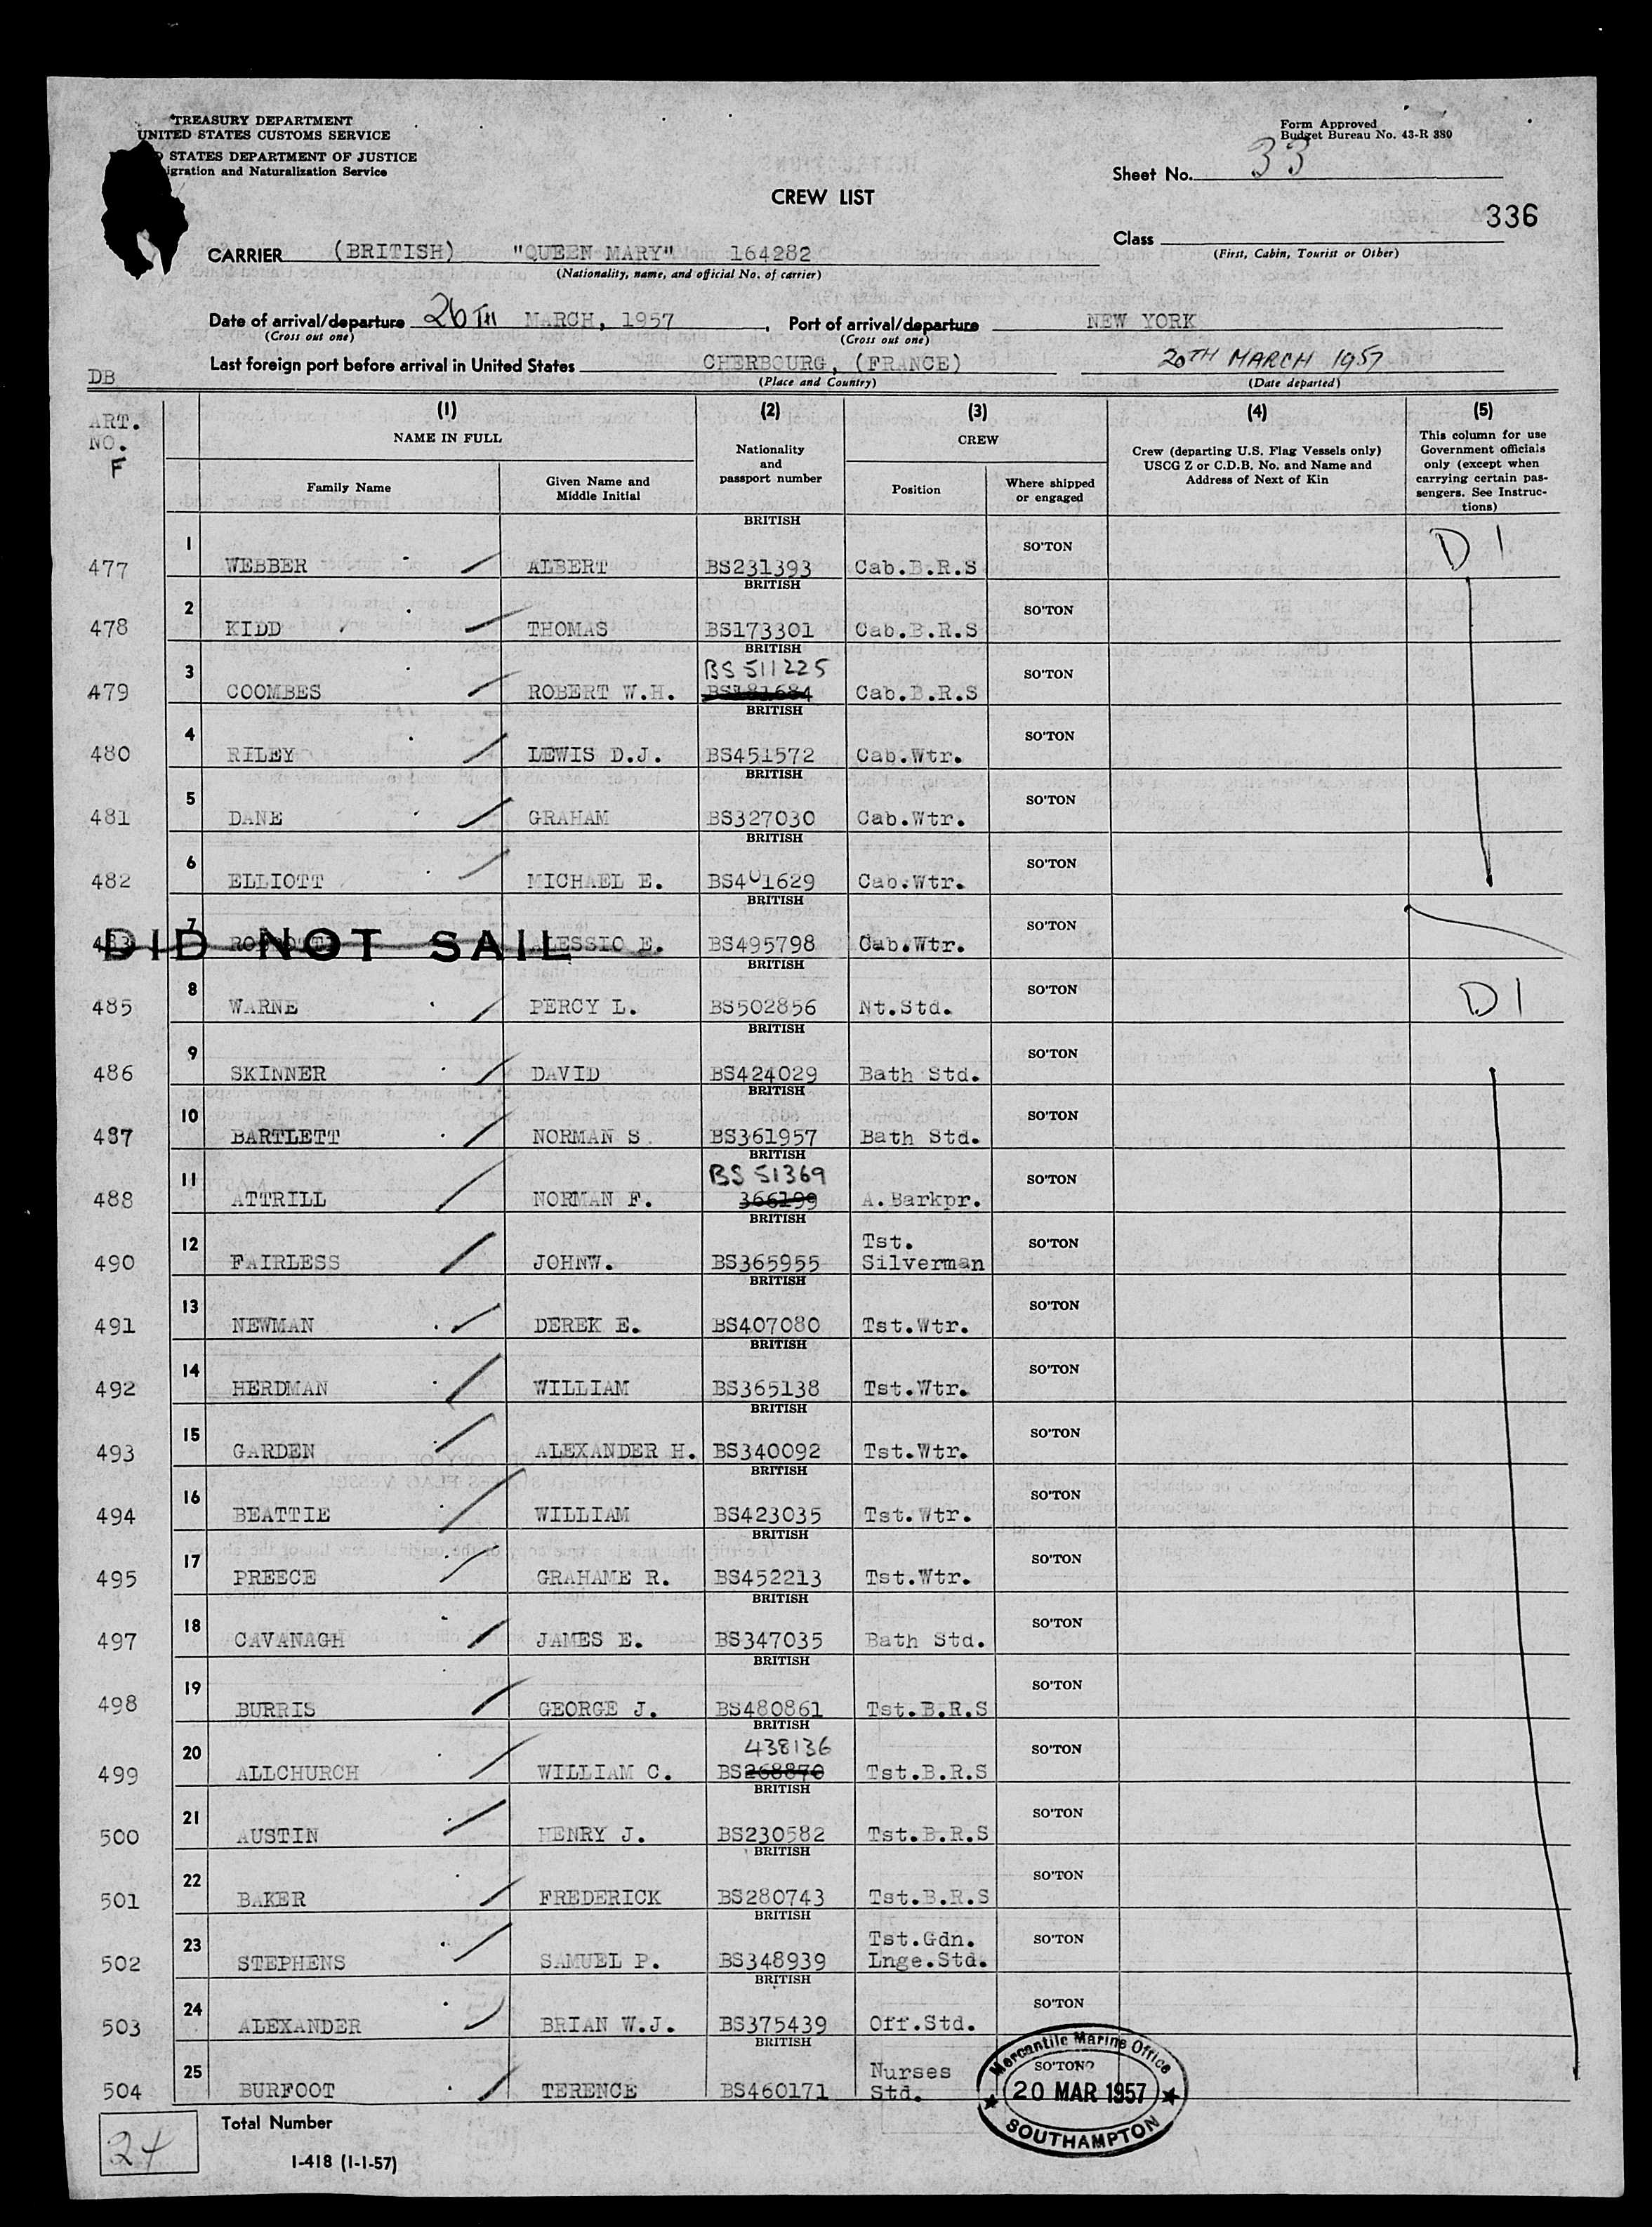 TREASURY DEPARTMENT
UNITED STATES CUSTOMS SERVICE
STATES DEPARTMENT OF JUSTICE
igration and Naturalization Service
Form Approved
Budget Bureau No. 43-R 380
Sheet No. 33
CREW LIST
336
CARRIER (BRITISH) "QUEEN MARY" 164282
(Nationality, name, and official No. of carrier)
Class
(First, Cabin, Tourist or Other)
Date of arrival/departure 26TH MARCH, 1957, Port of arrival/departure NEW YORK
(Cross out one) (Cross out one)
Last foreign port before arrival in United States CHERBOURG, (FRANCE) 20TH MARCH 1957
(Place and Country) (Date departed)
DB
ART. NO. F
(1) (2) (3) (4) (5)
NAME IN FULL
Family Name
Given Name and Middle Initial
Nationality and passport number
CREW
Position
Where shipped or engaged
Crew (departing U.S. Flag Vessels only) USCG Z or C.D.B. No. and Name and Address of Next of Kin
This column for use Government officials only (except when carrying certain passengers. See Instructions)
477 1 WEBBER ALBERT BRITISH BS231393 Cab.B.R.S SO'TON D1
478 2 KIDD THOMAS BRITISH BS173301 Cab.B.R.S SO'TON
479 3 COOMBES ROBERT W.H. BRITISH BS 511225 Cab.B.R.S SO'TON
480 4 RILEY LEWIS D.J. BRITISH BS451572 Cab.Wtr. SO'TON
481 5 DANE GRAHAM BRITISH BS327030 Cab.Wtr. SO'TON
482 6 ELLIOTT MICHAEL E. BRITISH BS401629 Cab.Wtr. SO'TON
483 7 DID NOT SAIL ALESSIO E. BRITISH BS495798 Cab.Wtr. SO'TON
485 8 WARNE PERCY L. BRITISH BS502856 Nt.Std. SO'TON D1
486 9 SKINNER DAVID BRITISH BS424029 Bath Std. SO'TON
487 10 BARTLETT NORMAN S. BRITISH BS361957 Bath Std. SO'TON
488 11 ATTRILL NORMAN F. BRITISH BS 51369 366199 A.Barkpr. SO'TON
490 12 FAIRLESS JOHNW. BRITISH BS365955 Tst. Silverman SO'TON
491 13 NEWMAN DEREK E. BRITISH BS407080 Tst.Wtr. SO'TON
492 14 HERDMAN WILLIAM BRITISH BS365138 Tst.Wtr. SO'TON
493 15 GARDEN ALEXANDER H. BRITISH BS340092 Tst.Wtr. SO'TON
494 16 BEATTIE WILLIAM BRITISH BS423035 Tst.Wtr. SO'TON
495 17 PREECE GRAHAME R. BRITISH BS452213 Tst.Wtr. SO'TON
497 18 CAVANAGH JAMES E. BRITISH BS347035 Bath Std. SO'TON
498 19 BURRIS GEORGE J. BRITISH BS480861 Tst.B.R.S SO'TON
499 20 ALLCHURCH WILLIAM C. BRITISH 438136 BS268870 Tst.B.R.S SO'TON
500 21 AUSTIN HENRY J. BRITISH BS230582 Tst.B.R.S SO'TON
501 22 BAKER FREDERICK BRITISH BS280743 Tst.B.R.S SO'TON
502 23 STEPHENS SAMUEL P. BRITISH BS348939 Tst.Gdn. Lnge.Std. SO'TON
503 24 ALEXANDER BRIAN W.J. BRITISH BS375439 Off.Std. SO'TON
504 25 BURFOOT TERENCE BRITISH BS460171 Nurses Std. SO'TON
Mercantile Marine Office
20 MAR 1957
SOUTHAMPTON
24
Total Number
I-418 (1-1-57)